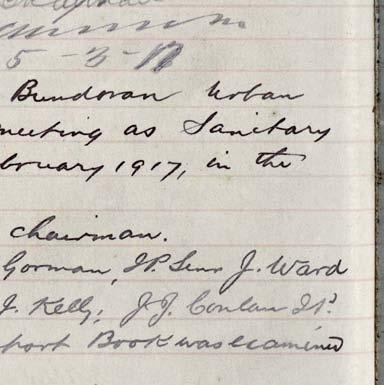 5-3-17
Bundoran Urban
meeting as Sanitary
bruary 1917, in the
chairman.
Gorman, JP. Senr J. Ward
J. Kelly; J. J. Conlan JP.
port Book was examined